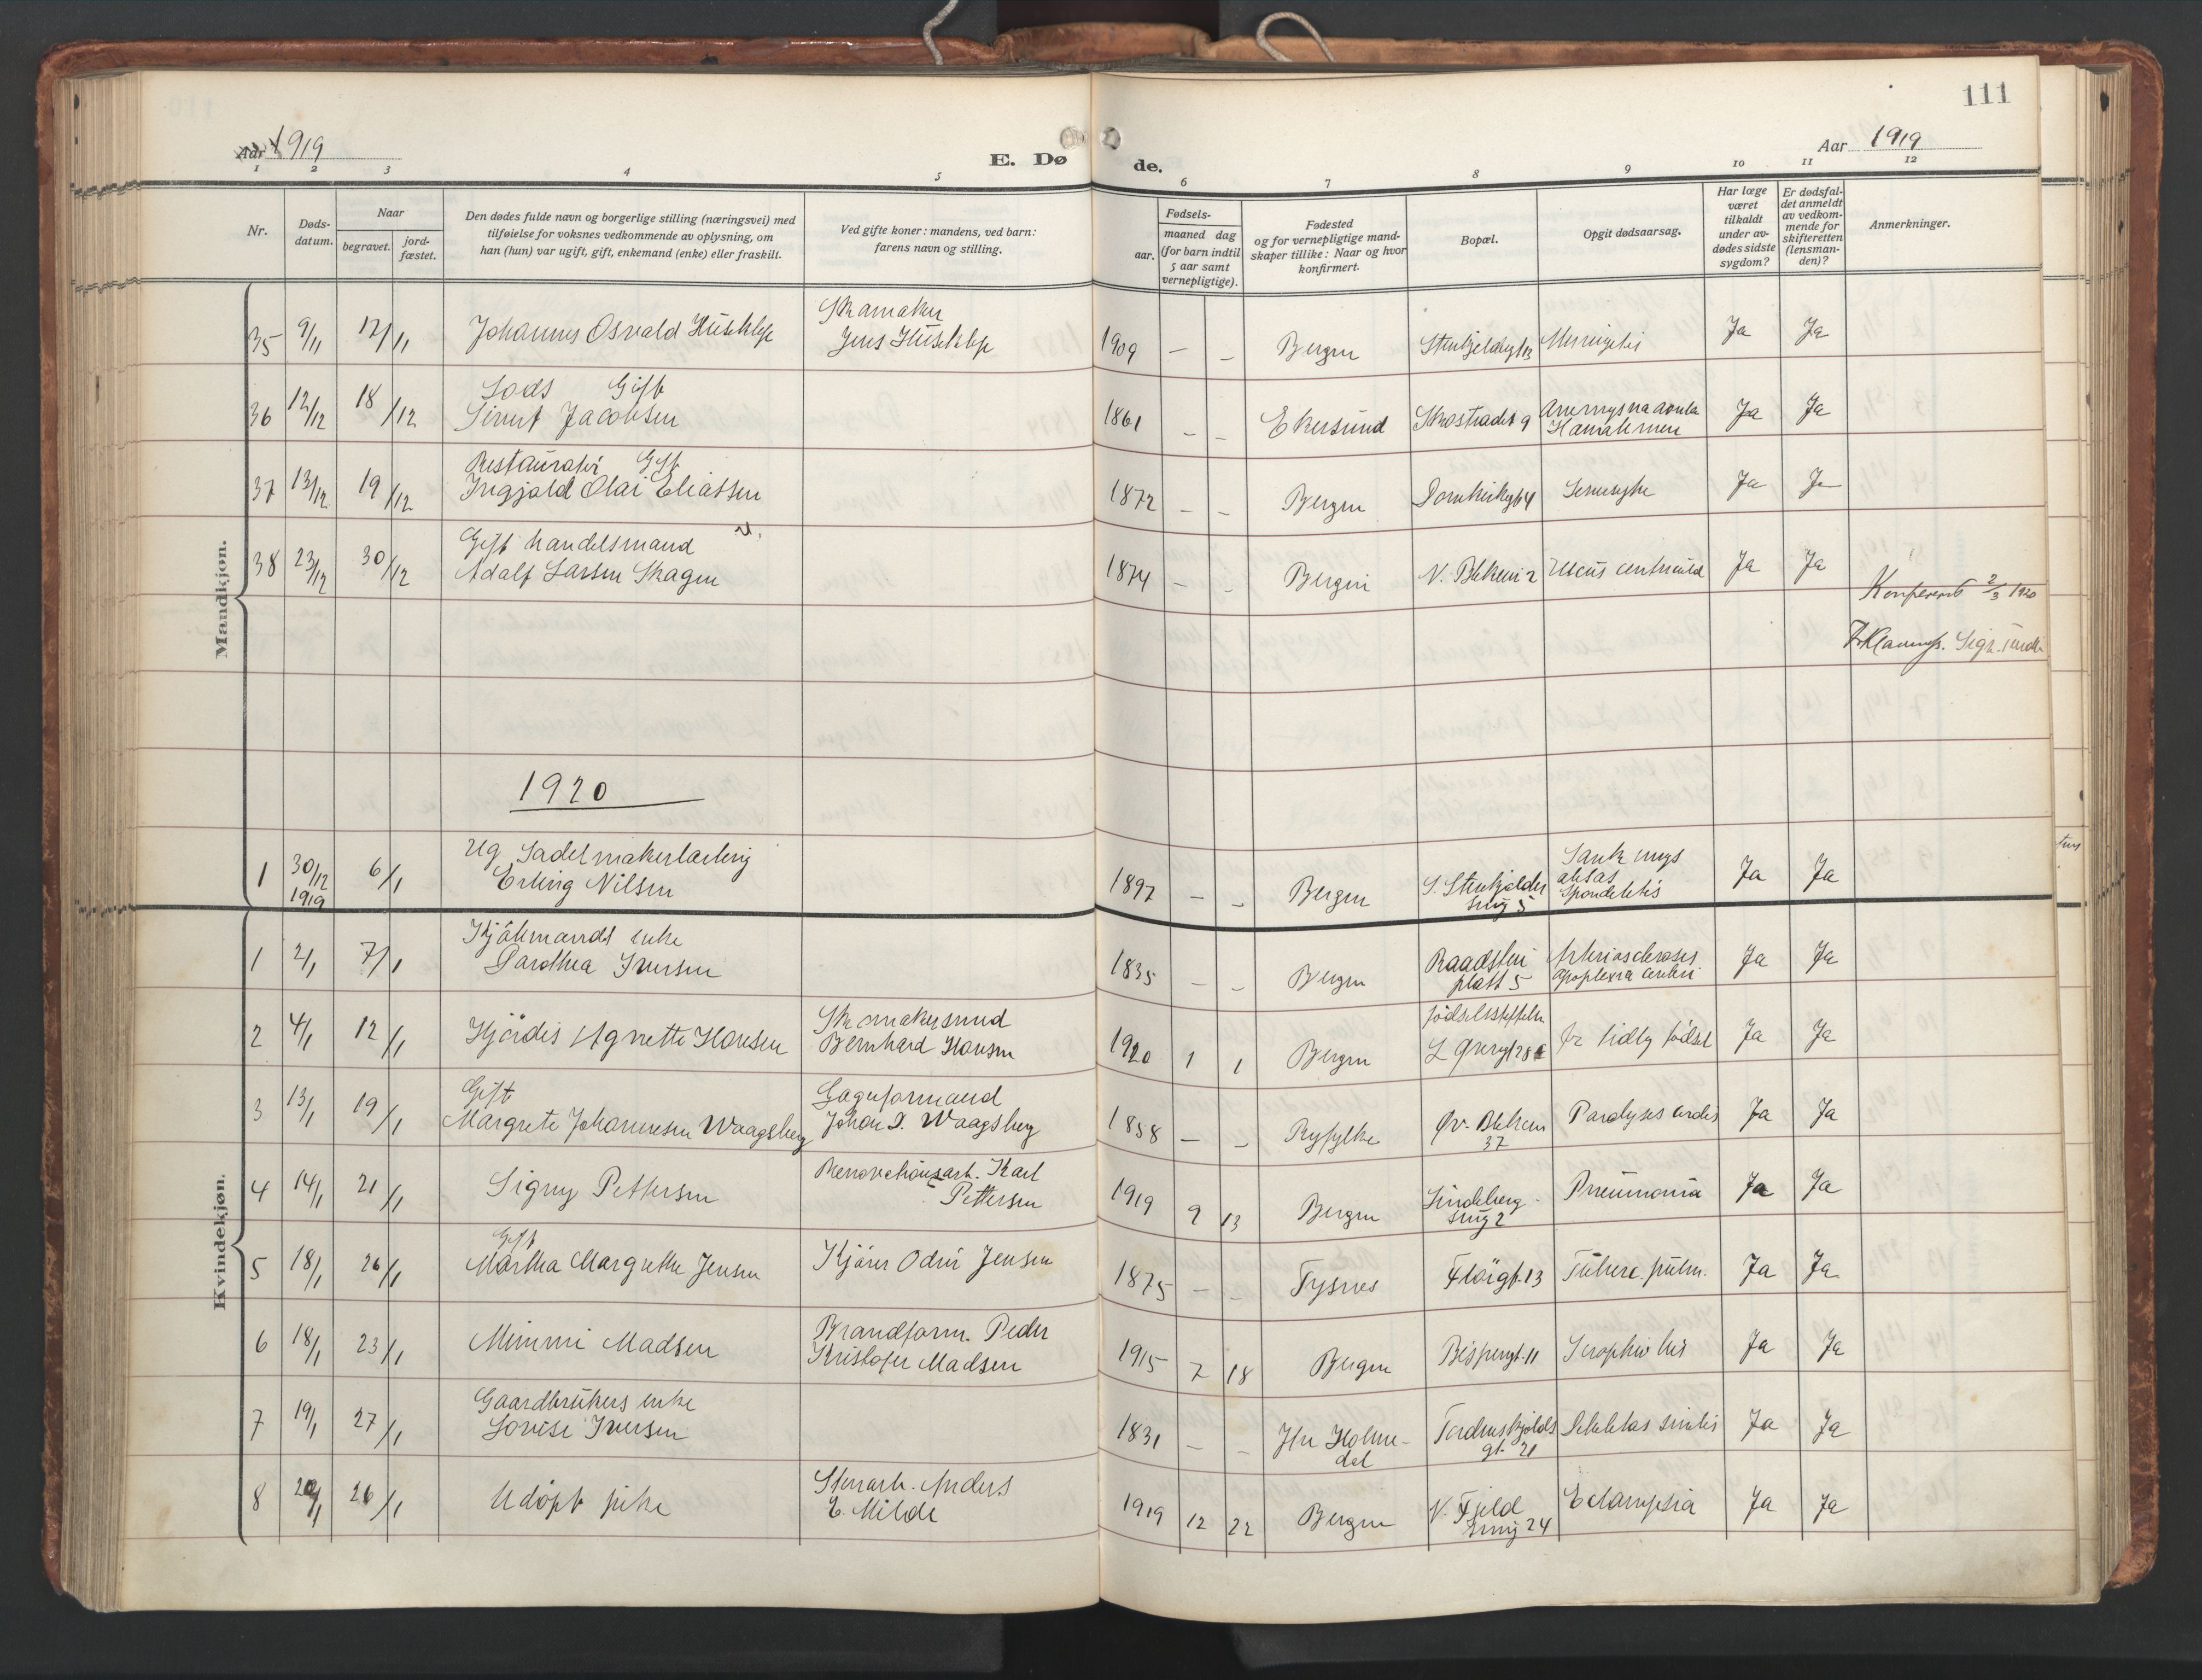 111
Aar 1919
E. Dø
de.
Aar 1919
1 2 3 4 5 6 7 8 9 10 11 12
Nr.
Døds-
datum.
Naar
begravet.
jord-
fæstet.
Den dødes fulde navn og borgerlige stilling (næringsvei) med
tilføielse for voksnes vedkommende av oplysning, om
han (hun) var ugift, gift, enkemand (enke) eller fraskilt.
Ved gifte koner: mandens, ved barn:
farens navn og stilling.
Fødsels-
aar.
maaned dag
(for barn indtil
5 aar samt
vernepligtige).
Fødested
og for vernepligtige mand-
skaper tillike: Naar og hvor
konfirmert.
Bopæl.
Opgit dødsaarsag.
Har læge
været
tilkaldt
under av-
dødes sidste
sygdom?
Er dødsfal-
det anmeldt
av vedkom-
mende for
skifteretten
(lensman-
den)?
Anmerkninger.
Mandkjøn.
35 9/11 17/11 Johannes Osvald
Skomaker
Jens
1909 — — Bergen Ja Ja
36 12/12 18/12 Lods Gift
Sivert Jacobsen
1861 — — Ekersund Skostrædet 9 Ja Ja
37 13/12 19/12 Restauratør Gift
Ingjald Olai Eliassen
1872 — — Bergen Domkirkegt 4 Ja Ja
38 23/12 30/12 Gift handelsmand
Adolf Larsen Skagen
1874 — — Bergen N. Blekevei 2 Ulcus ventriculi Ja Ja
Konferert 2/3 1920
1920
1 30/12 1919 6/1 Ug. Sadelmakerlærling
Erling Nilsen
1897 — — Bergen S. Stenkjelder
smug 5
Ja Ja
Kvindekjøn.
1 2/1 7/1 Kjølmands enke
Dorothea Iversen
1835 — — Bergen Raadstu
plass 5
Arteriosclerosis
apoplexia cerebri
Ja Ja
2 4/1 12/1 Hjørdis Agnette Hansen
Skomakersvend
Bernhard Hansen
1920 1 1 Bergen
Fødselsstiftelsen
for tidlig fødsel Ja Ja
3 13/1 19/1 Gift
Margrete Johannesen Waagsberg
Johan I. Waagsberg
1858 — — Ryfylke Øv. Blekevei
37
Paralyses cordis Ja Ja
4 14/1 21/1 Signy Pettersen
Renovationsarb. Karl
Pettersen
1919 9 13 Bergen Lindeberg-
smug 2
Pneumonia Ja Ja
5 18/1 26/1 Gift
Martha Margrethe Jensen
Kjører Odin Jensen
1875 — — Tysnes Fløigt. 13 Tuberc. pulm. Ja Ja
6 18/1 23/1 Mimmi Madsen
Brandform. Peder
Kristofer Madsen
1915 7 18 Bergen Bispengt. 11 Ja Ja
7 19/1 27/1 Gaardbrukers enke
Lovise Iversen
1831 — — Ytr Holme-
dal
Tordenskjolds
gt. 21
Debilitas senilis Ja Ja
8 20/1 26/1 Udøpt pike
Stenarb. Anders
E. Milde
1919 12 22 Bergen N. Fjeld
smug 24
Eclampsia Ja Ja